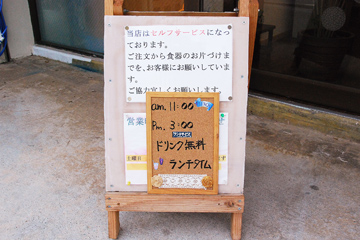 当店はセルフサービスになっ
ております。
ご注文から食器のお片づけま
でを、お客様にお願いしていま
す。
ご協力宜しくお願いします。
営業
am. 11:00
Pm. 3:00
ドリンク無料
ランチタイム